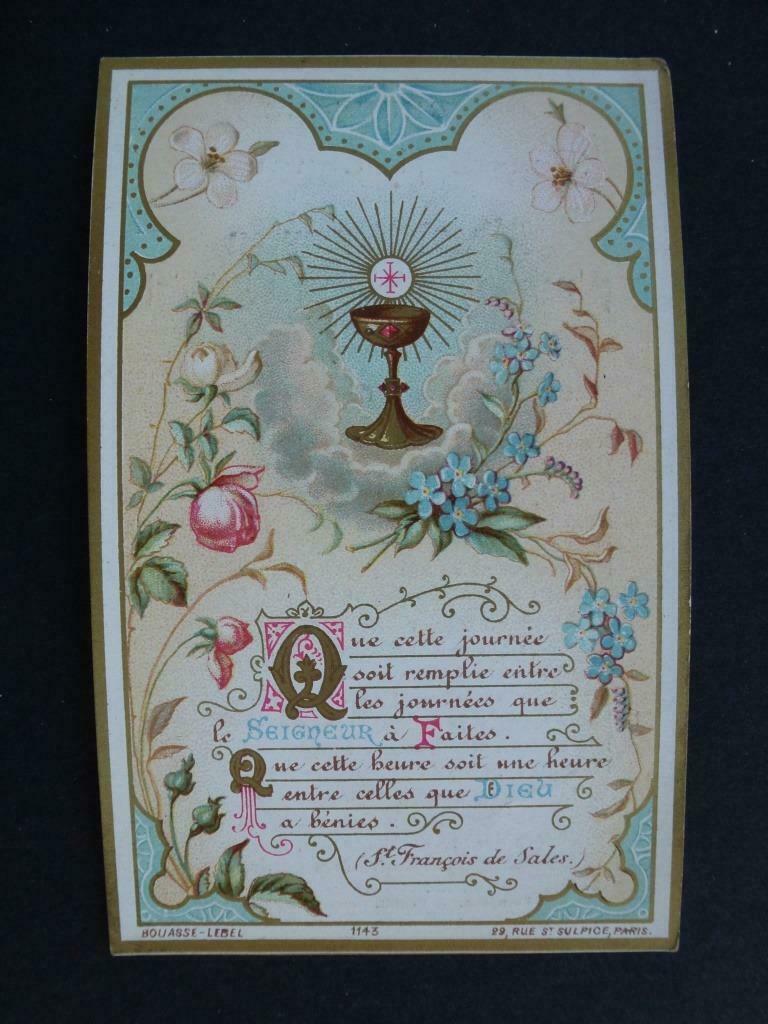 Que cette journée
soit remplie entre
les journées que
le SEIGNEUR à Faites.
Que cette heure soit une heure
entre celles que DIEU
a bénies.
(St. François de Sales.)
BOUASSE-LEBEL 1143 29, RUE ST SULPICE, PARIS.